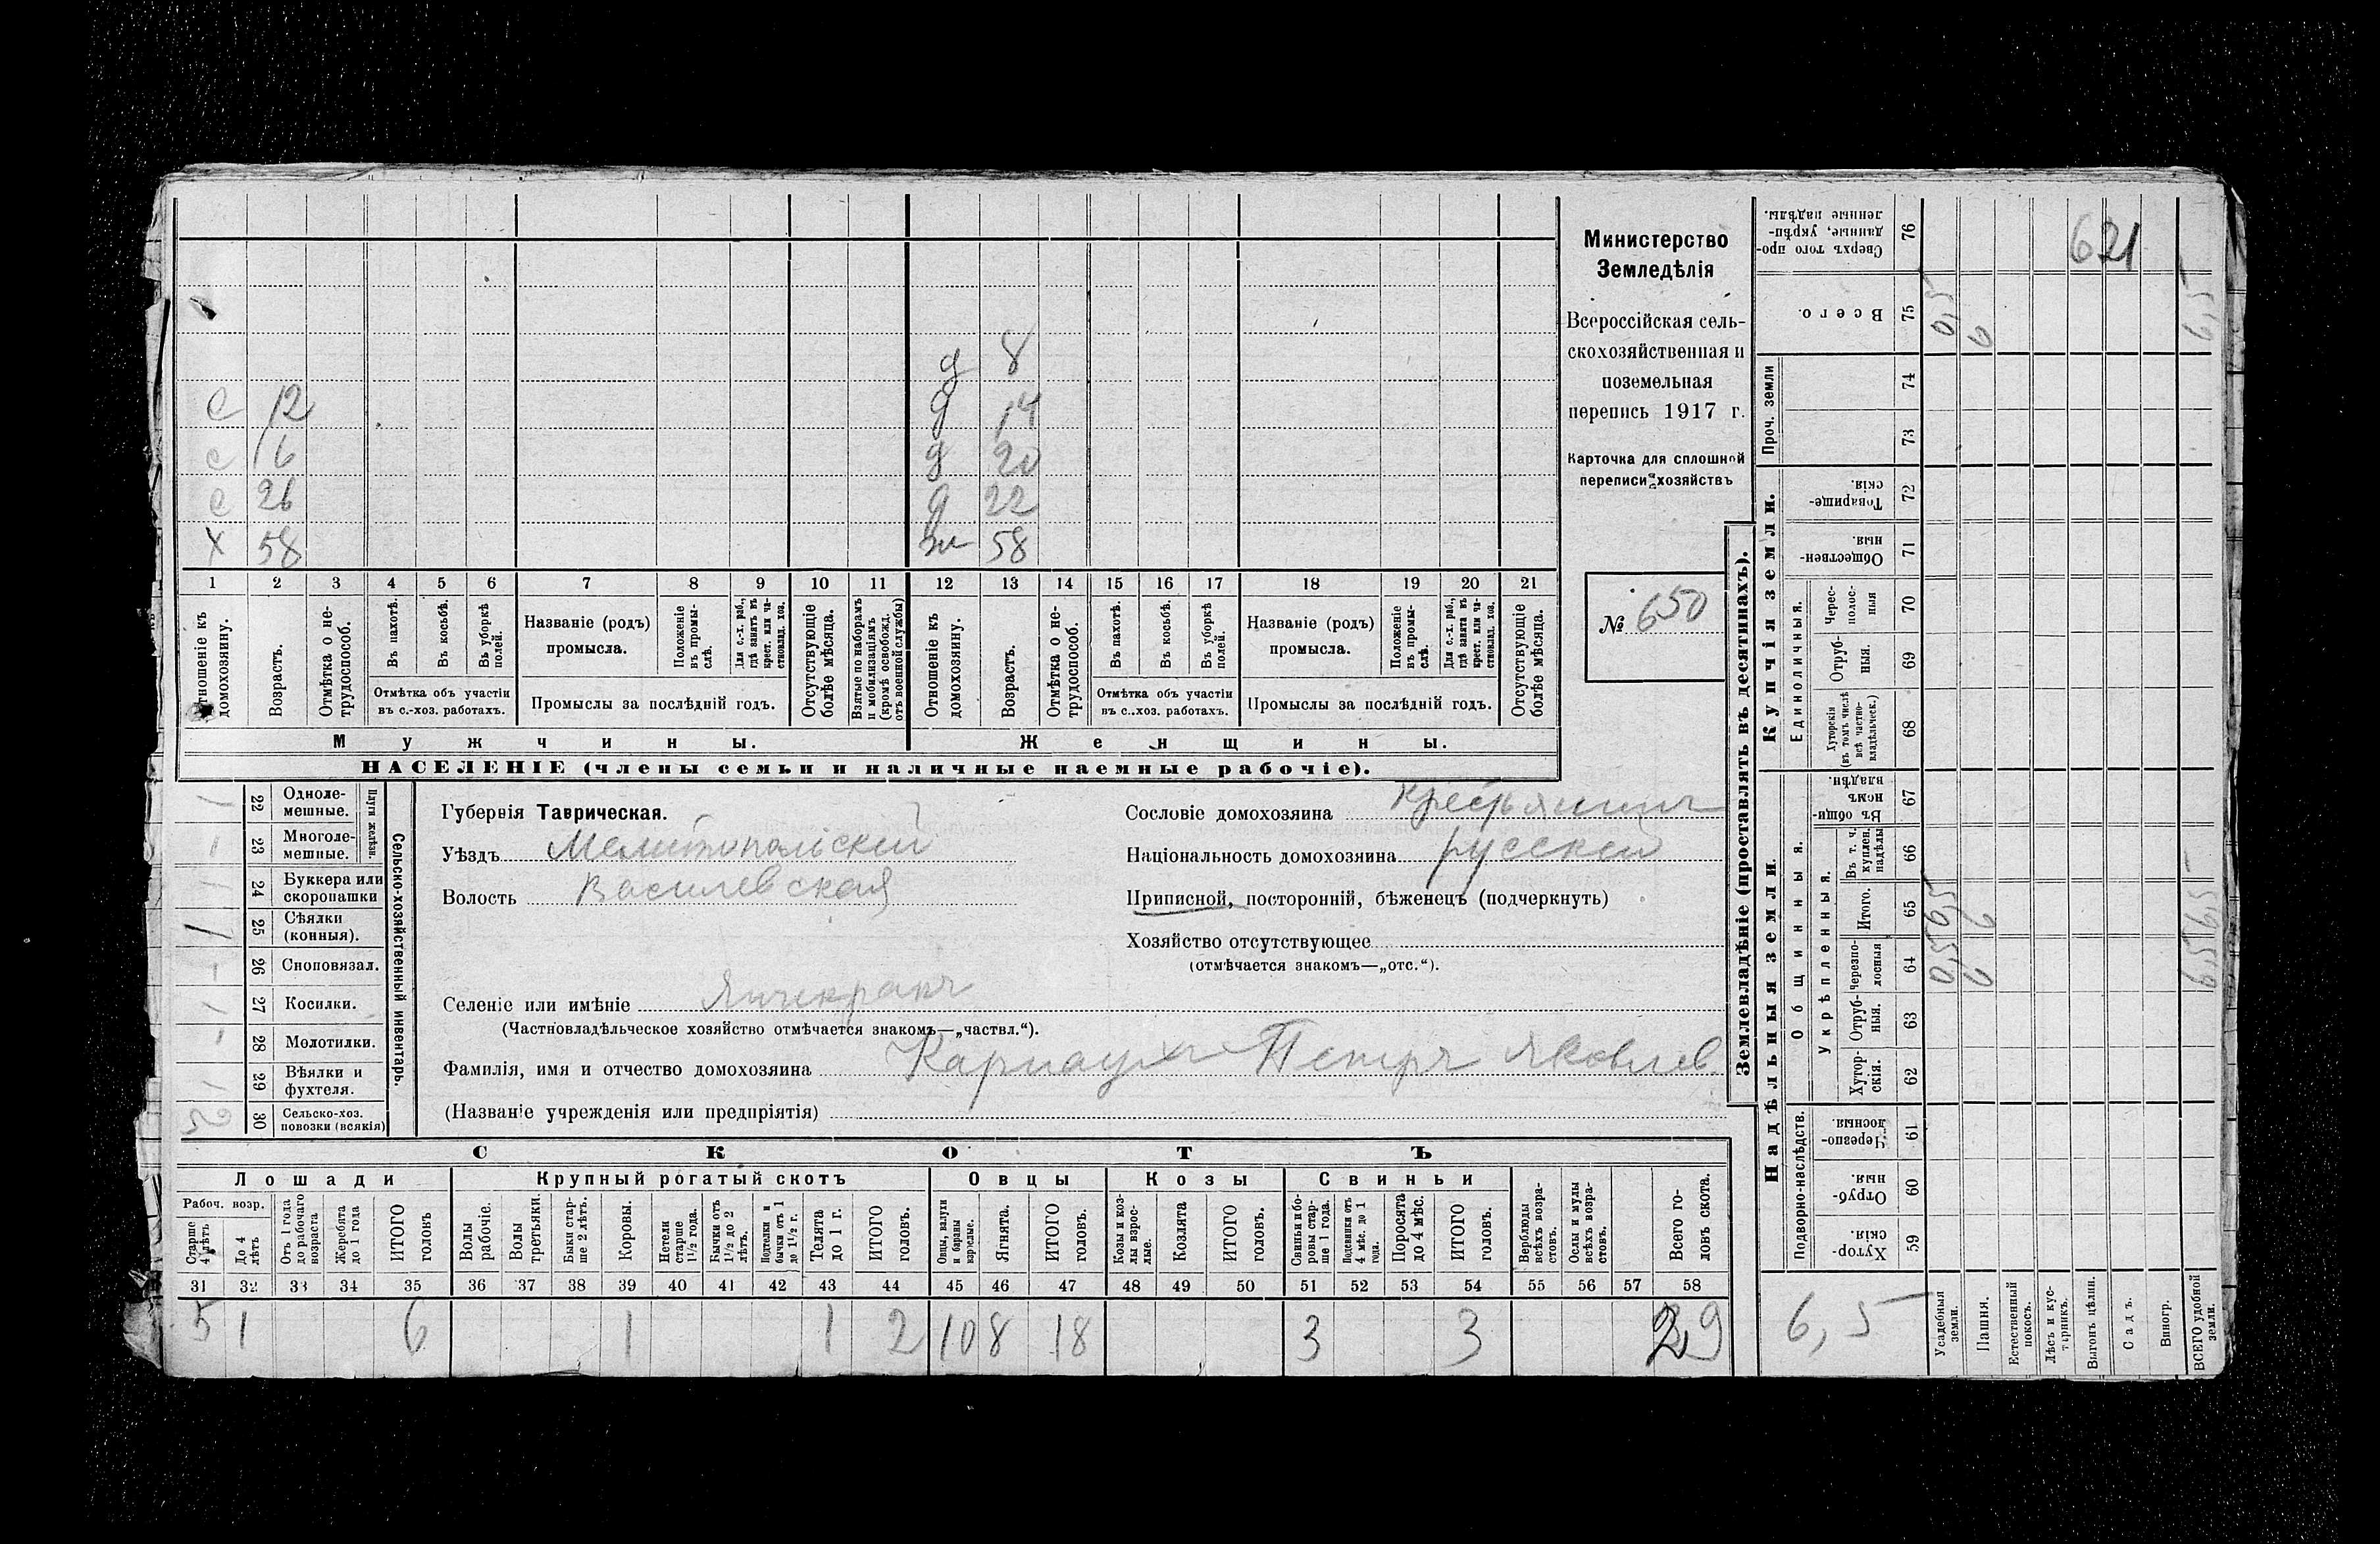 с 12
с 16
с 26
х 58
д 8
д 14
д 20
д 22
ж 58
1 2 3 4 5 6 7 8 9 10 11 12 13 14 15 16 17 18 19 20 21
Отношеніе къ домохозяину.
Возрастъ.
Отмѣтка о не-
трудоспособ.
Въ пахотѣ.
Въ косьбѣ.
Въ уборкѣ
полей.
Отмѣтка объ участіи
въ с.-хоз. работахъ.
Названіе (родъ)
промысла.
Положеніе
въ промы-
слѣ.
Для с.-х. раб.,
гдѣ занятъ въ
крест. или ча-
стновлад. хоз.
Промыслы за послѣдній годъ.
Отсутствующіе
болѣе мѣсяца.
Взятые по наборамъ
и мобилизаціямъ
(кромѣ освобожд.
отъ военной службы)
Отношеніе къ
домохозяину.
Возрастъ.
Отмѣтка о не-
трудоспособ.
Въ пахотѣ.
Въ косьбѣ.
Въ уборкѣ
полей.
Отмѣтка объ участіи
въ с..хоз. работахъ.
Названіе (родъ)
промысла.
Положеніе
въ промы-
слѣ.
Для с.-х. раб.,
гдѣ занята въ
крест. или ча-
стновлад. хоз.
Промыслы за послѣдній годъ.
Отсутствующіе
болѣе мѣсяца.
Мужчины.
Женщины.
НАСЕЛЕНІЕ (члены семьи и наличные наемные рабочіе).
Министерство
Земледѣлія
Всероссійская сель-
скохозяйственная и
поземельная
перепись 1917 г.
Карточка для сплошной
переписи хозяйствъ
№ 650
Сельско-хозяйственный инвентарь.
Плуги желѣзн.
22 Однole-
мешные.
23 Многоле-
мешные.
24 Буккера или
скоропашки
1 25 Сѣялки
(конныя).
26 Сноповязал.
27 Косилки.
28 Молотилки.
29 Вѣялки и
фухтеля.
30 Сельско-хоз.
повозки (всякія)
Губернія Таврическая.
Уѣздъ Мелитопольскій
Волость Василевская
Селеніе или имѣніе Янчекракъ
(Частновладѣльческое хозяйство отмѣчается знакомъ—„частвл.“).
Фамилія, имя и отчество домохозяина Карнаухъ Петръ Яковлев
(Названіе учрежденія или предпріятія)
Сословіе домохозяина крестьянинъ
Національность домохозяина русскій
Приписной, посторонній, бѣженецъ (подчеркнуть)
Хозяйство отсутствующее
(отмѣчается знакомъ—„отс.“).
СКОТЪ
Лошади
Рабоч. возр.
Старше
4 лѣтъ
До 4
лѣтъ
Отъ 1 года
до рабочаго
возраста
Жеребята
до 1 года
ИТОГО
головъ
Крупный рогатый скотъ
Волы
рабочіе.
Волы
третьяки.
Быки стар-
ше 2 лѣтъ.
Коровы.
Нетели
старше
1½ года.
Бычки отъ
1½ до 2
лѣтъ.
Подтелки и
бычки отъ 1
до 1½ г.
Телята
до 1 г.
ИТОГО
головъ.
Овцы
Овцы, валухи
и бараны
взрослые.
Ягнята.
ИТОГО
головъ.
Козы
Козы и коз-
лы взрос-
лые.
Козлята
ИТОГО
головъ.
Свиньи
Свиньи и бо-
ровы стар-
ше 1 года.
Подсвинки отъ
4 мѣс. до 1
года.
Поросята
до 4 мѣс.
ИТОГО
головъ.
Верблюды
всѣхъ возра-
стовъ.
Ослы и мулы
всѣхъ возра-
стовъ.
Всего го-
ловъ скота.
31 32 33 34 35 36 37 38 39 40 41 42 43 44 45 46 47 48 49 50 51 52 53 54 55 56 57 58
5 1 6 1 1 2 10 8 18 3 3 29
Землевладѣніе (проставлять въ десятинахъ).
Купчія земли.
Сверхъ того про-
данные, укрѣп-
ленные надѣлы.
76
621
Всего.
75
Проч. земли
74
73
Товарище-
скія.
72
Обществен-
ныя.
71
Единоличныя.
Черес-
полос-
ныя
70
Отруб-
ныя.
69
Хуторскія
(въ томъ числѣ
всѣ частно-
владѣльческ.)
68
Надѣльныя земли.
Общинныя.
Въ общин-
номъ
владѣн.
67
Укрѣпленныя.
Въ т. ч.
куплен.
надѣлы
66
Итого.
65
Черезпо-
лосныя
64
Отруб-
ныя.
63
Хутор-
скія.
62
Подворно-наслѣдств.
Черезпо-
лосныя.
61
Отруб-
ныя.
60
Хутор-
скія.
59
6,5
Усадебныя
земли.
Пашня.
Естественный
покосъ.
Лѣсъ и кус-
тарникъ.
Выгонъ цѣлин.
Садъ.
Виногр.
ВСЕГО удобной
земли.